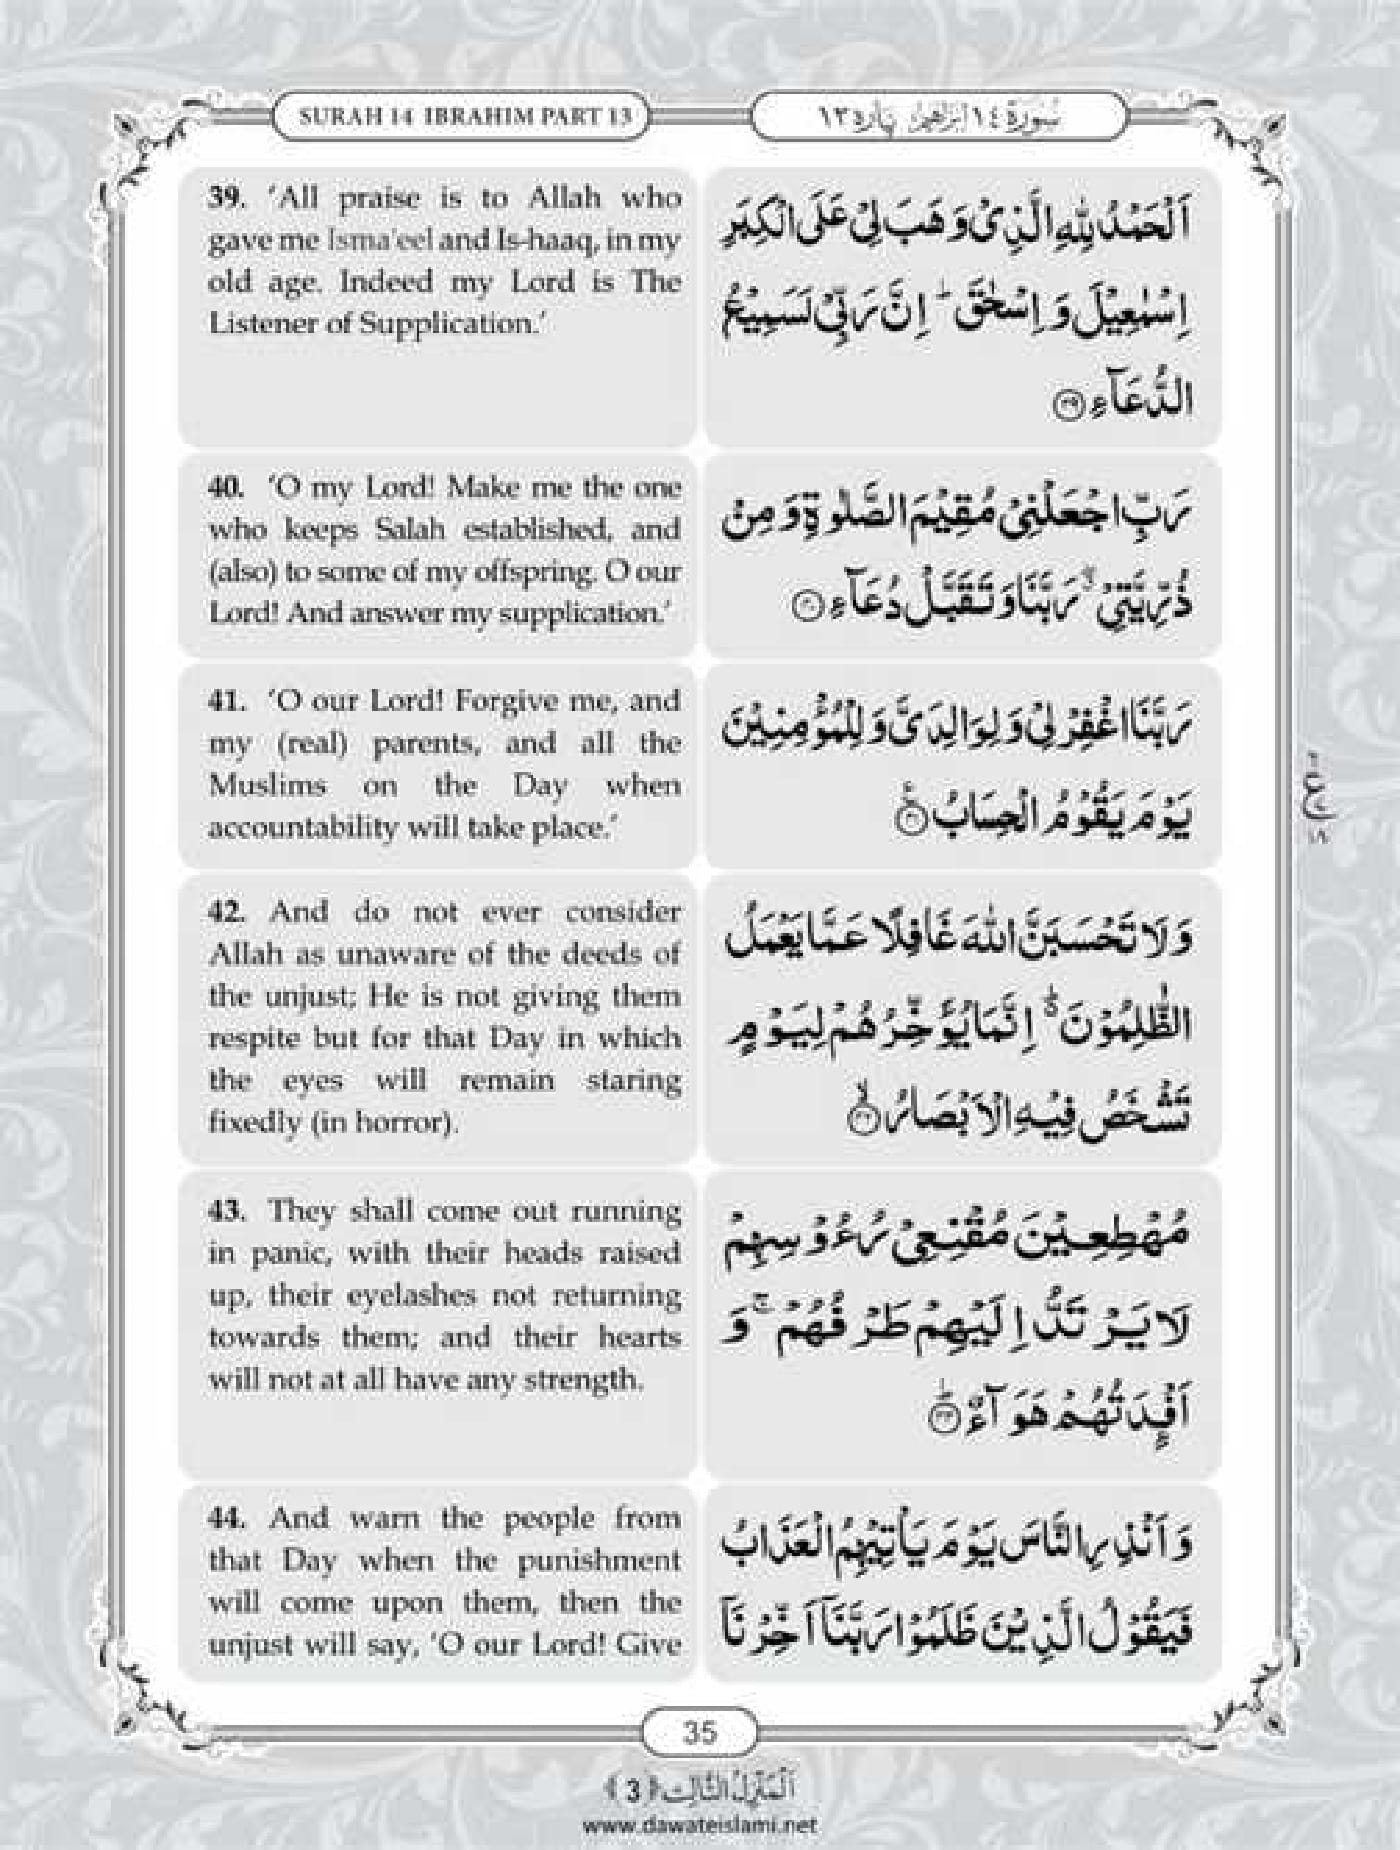 SURAH 14 IBRAHIM PART 13
سُوْرَةُ ١٤ اِبْرٰهِيْمُ پَارَه ١٣
39. ‘All praise is to Allah who
gave me Isma'eel and Is-haaq, in my
old age. Indeed my Lord is The
Listener of Supplication.’
اَلْحَمْدُ لِلّٰهِ الَّذِیْ وَهَبَ لِیْ عَلَی الْكِبَرِ
اِسْمٰعِیْلَ وَ اِسْحٰقَ ؕ اِنَّ رَبِّیْ لَسَمِیْعُ
الدُّعَآءِ ﴿۳۹﴾
40. ‘O my Lord! Make me the one
who keeps Salah established, and
(also) to some of my offspring. O our
Lord! And answer my supplication.’
رَبِّ اجْعَلْنِیْ مُقِیْمَ الصَّلٰوةِ وَ مِنْ
ذُرِّیَّتِیْ ٭ۖ رَبَّنَا وَ تَقَبَّلْ دُعَآءِ ﴿۴۰﴾
41. ‘O our Lord! Forgive me, and
my (real) parents, and all the
Muslims on the Day when
accountability will take place.’
رَبَّنَا اغْفِرْ لِیْ وَ لِوَالِدَیَّ وَ لِلْمُؤْمِنِیْنَ
یَوْمَ یَقُوْمُ الْحِسَابُ ﴿۴۱﴾
42. And do not ever consider
Allah as unaware of the deeds of
the unjust; He is not giving them
respite but for that Day in which
the eyes will remain staring
fixedly (in horror).
وَ لَا تَحْسَبَنَّ اللّٰهَ غَافِلًا عَمَّا یَعْمَلُ
الظّٰلِمُوْنَ ۬ؕ اِنَّمَا یُؤَخِّرُهُمْ لِیَوْمٍ
تَشْخَصُ فِیْهِ الْاَبْصَارُ ﴿۴۲﴾
43. They shall come out running
in panic, with their heads raised
up, their eyelashes not returning
towards them; and their hearts
will not at all have any strength.
مُهْطِعِیْنَ مُقْنِعِیْ رُءُوْسِهِمْ
لَا یَرْتَدُّ اِلَیْهِمْ طَرْفُهُمْ ۚ وَ
اَفْـِٕدَتُهُمْ هَوَآءٌ ﴿۴۳﴾
44. And warn the people from
that Day when the punishment
will come upon them, then the
unjust will say, ‘O our Lord! Give
وَ اَنْذِرِ النَّاسَ یَوْمَ یَاْتِیْهِمُ الْعَذَابُ
فَیَقُوْلُ الَّذِیْنَ ظَلَمُوْا رَبَّنَاۤ اَخِّرْنَاۤ
35
اَلْمَنْزِلُ الثَّالِث ﴿3﴾
www.dawateislami.net